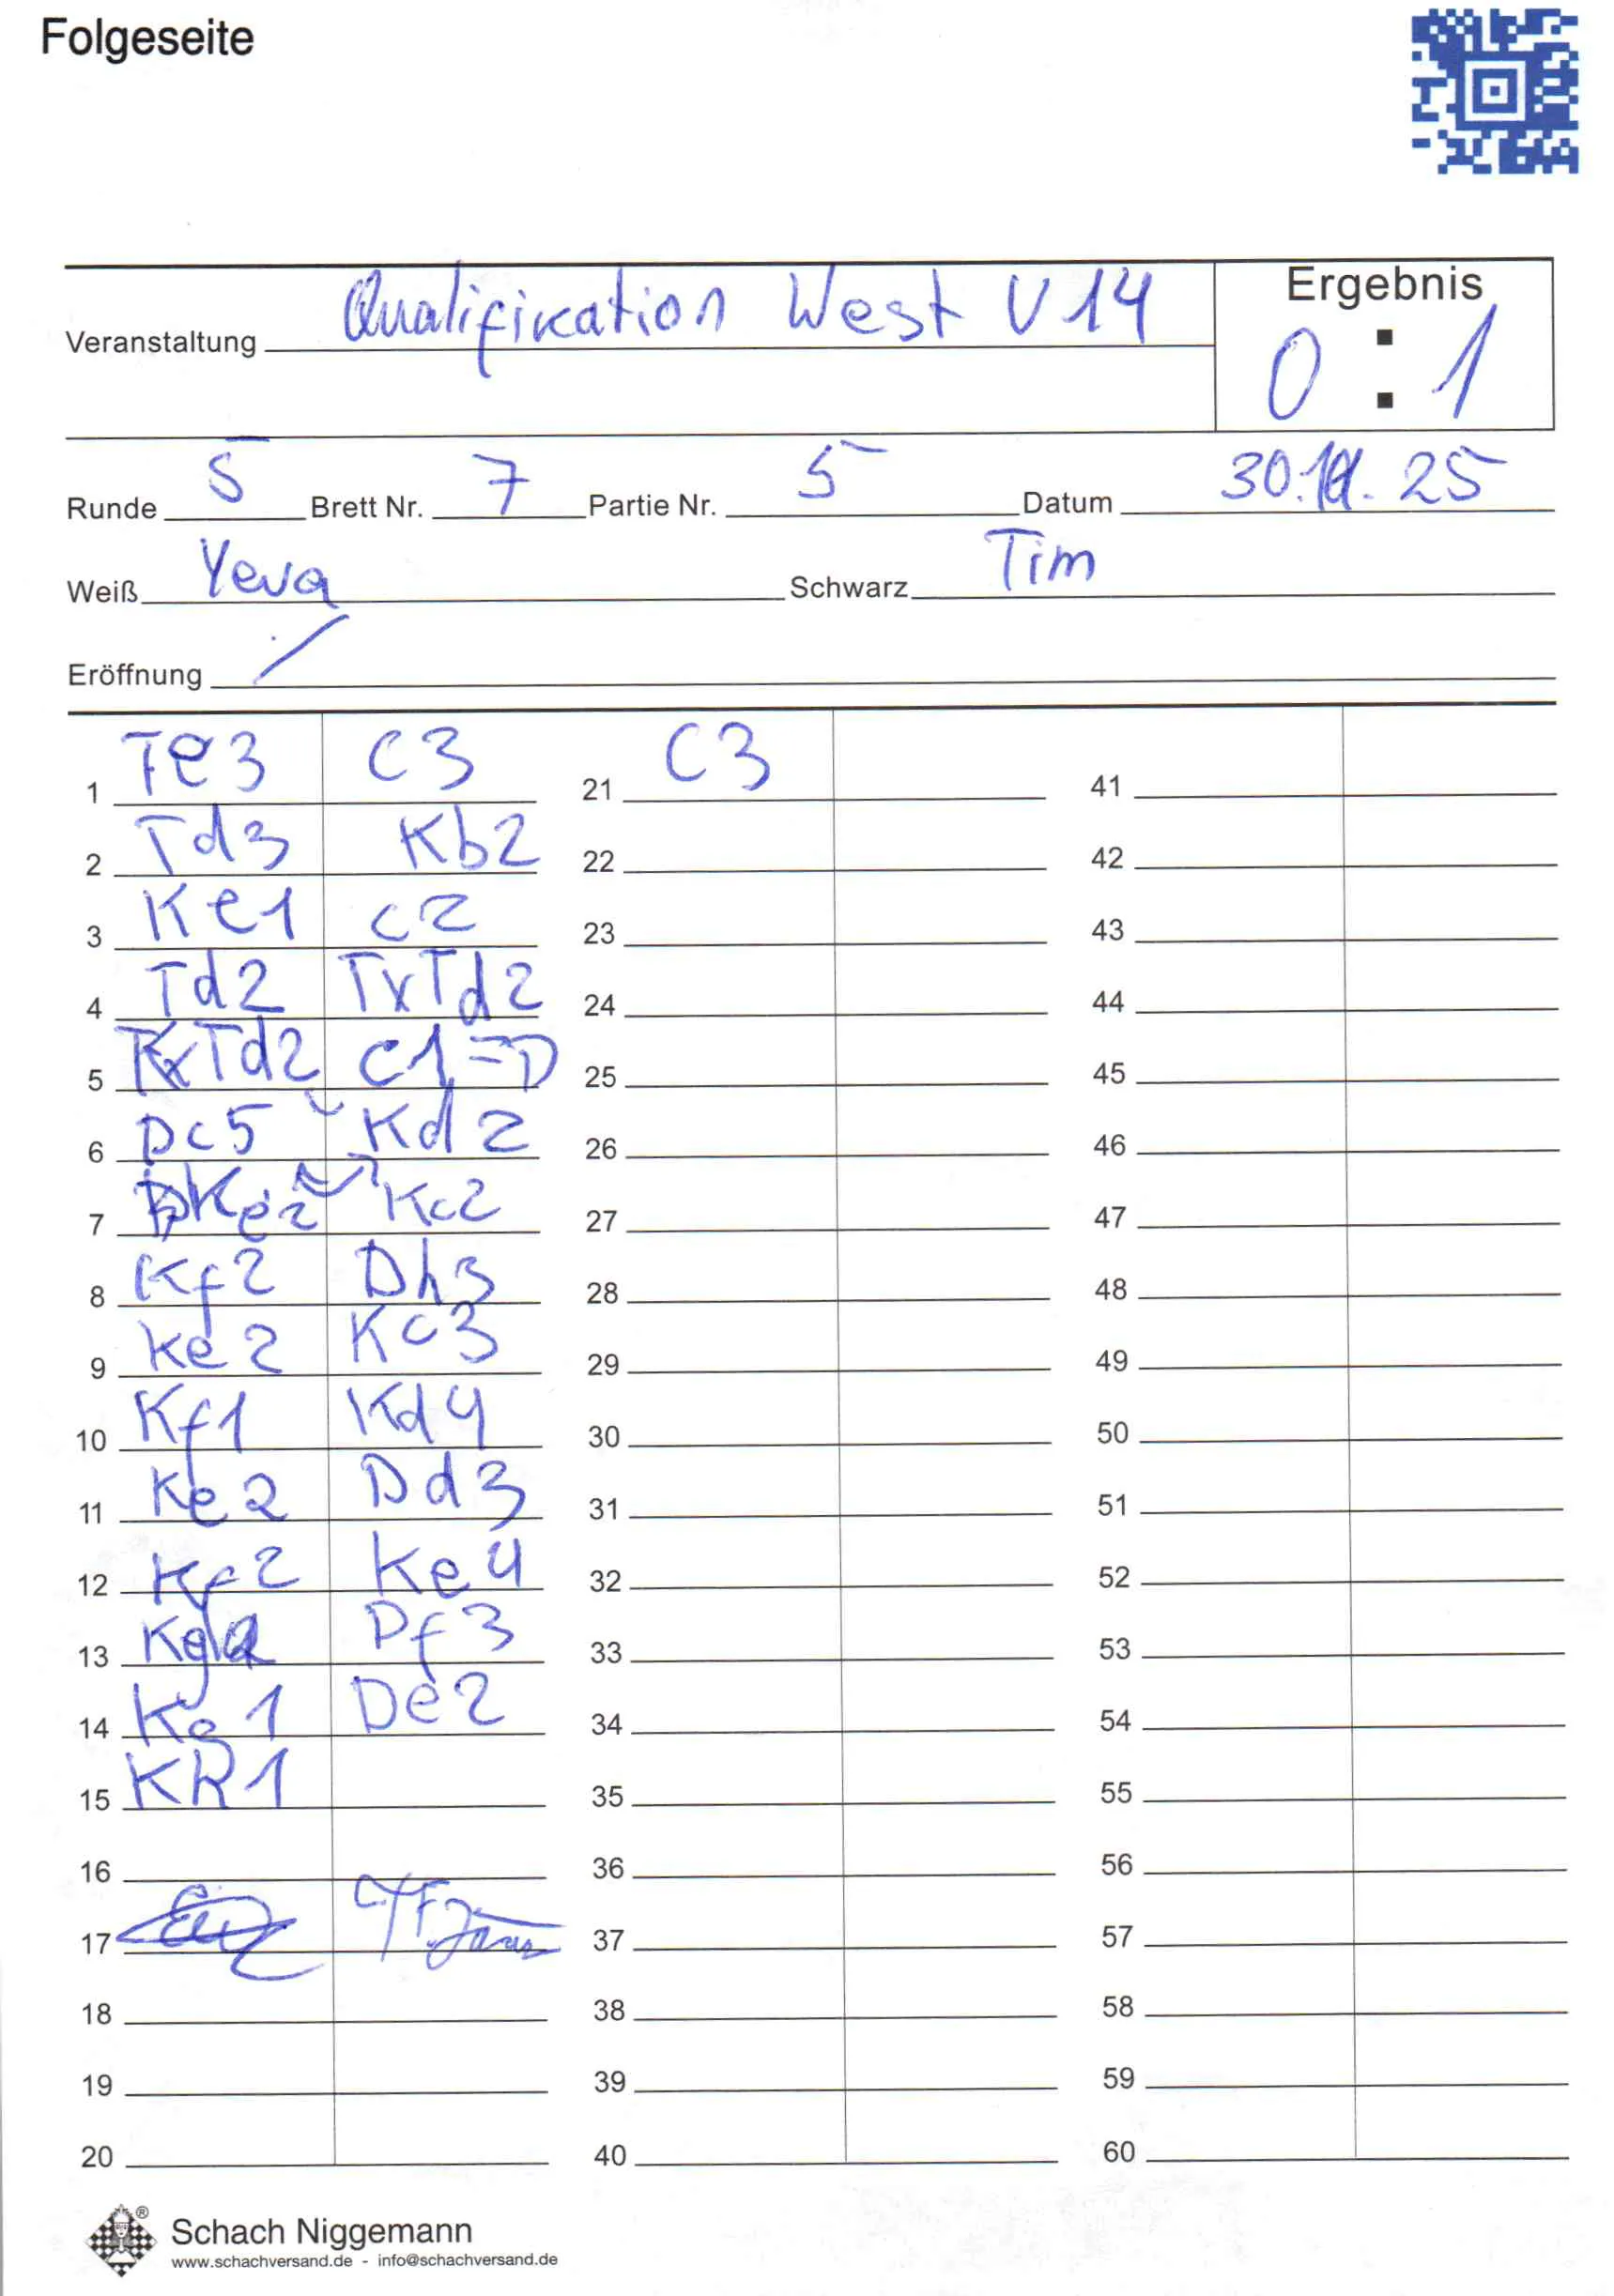 Folgeseite
Veranstaltung Qualifikation West U14
Ergebnis
0 : 1
Runde 5 Brett Nr. 7 Partie Nr. 5 Datum 30.11.25
Weiß Yeva Schwarz Tim
Eröffnung /
1 Te3 C3 21 C3 41
2 Td3 Kb2 22 42
3 Ke1 c2 23 43
4 Td2 TxTd2 24 44
5 KxTd2 C1=D 25 45
6 Dc5 Kd2 26 46
7 Ke2 Kc2 27 47
8 Kf2 Dh3 28 48
9 Ke2 Kc3 29 49
10 Kf1 Kd4 30 50
11 Ke2 Dd3 31 51
12 Kf2 Ke4 32 52
13 Df3 33 53
14 Kg1 De2 34 54
15 Kh1 35 55
16 36 56
17 37 57
18 38 58
19 39 59
20 40 60
Schach Niggemann
www.schachversand.de - info@schachversand.de